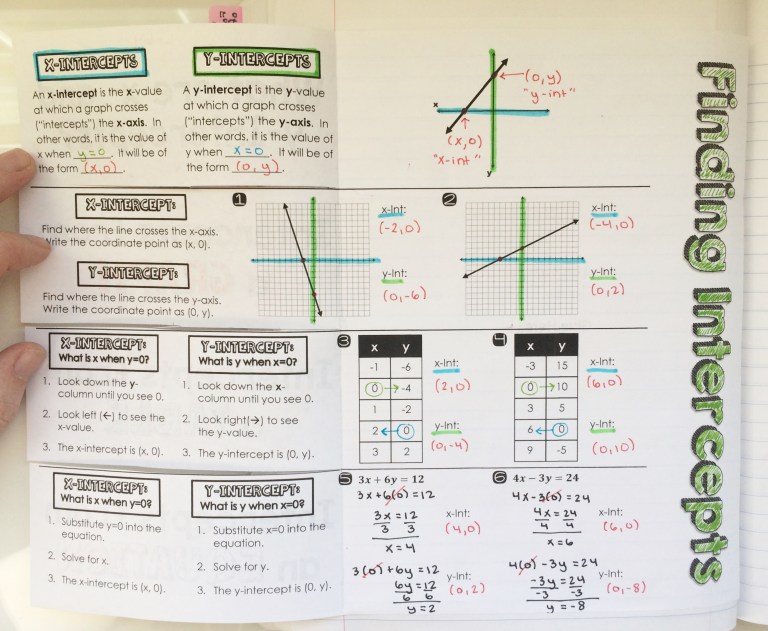 X-INTERCEPTS
An x-intercept is the x-value
at which a graph crosses
("intercepts") the x-axis. In
other words, it is the value of
x when y=0. It will be of
the form (x,0).
Y-INTERCEPTS
A y-intercept is the y-value
at which a graph crosses
("intercepts") the y-axis. In
other words, it is the value of
y when x=0. It will be of
the form (0,y).
(0,y)
"y-int"
x
(x,0)
"x-int"
y
Finding Intercepts
X-INTERCEPT:
Find where the line crosses the x-axis.
Write the coordinate point as (x, 0).
Y-INTERCEPT:
Find where the line crosses the y-axis.
Write the coordinate point as (0, y).
1
x-Int:
(-2,0)
y-Int:
(0,-6)
2
x-Int:
(-4,0)
y-Int:
(0,2)
X-INTERCEPT:
What is x when y=0?
1. Look down the y-
column until you see 0.
2. Look left (←) to see the
x-value.
3. The x-intercept is (x, 0).
Y-INTERCEPT:
What is y when x=0?
1. Look down the x-
column until you see 0.
2. Look right(→) to see
the y-value.
3. The y-intercept is (0, y).
3
x y
-1 -6
0 → -4
1 -2
2 ← 0
3 2
x-Int:
(2,0)
y-Int:
(0,-4)
4
x y
-3 15
0 → 10
3 5
6 ← 0
9 -5
x-Int:
(6,0)
y-Int:
(0,10)
X-INTERCEPT:
What is x when y=0?
1. Substitute y=0 into the
equation.
2. Solve for x.
3. The x-intercept is (x, 0).
Y-INTERCEPT:
What is y when x=0?
1. Substitute x=0 into the
equation.
2. Solve for y.
3. The y-intercept is (0, y).
5 3x + 6y = 12
3x+6(0)=12
3x=12
3 3
x=4
x-Int:
(4,0)
3(0)+6y=12
6y=12
6 6
y=2
y-Int:
(0,2)
6 4x − 3y = 24
4x-3(0)=24
4x=24
4 4
x=6
x-Int:
(6,0)
4(0)-3y=24
-3y=24
-3 -3
y=-8
y-Int:
(0,-8)